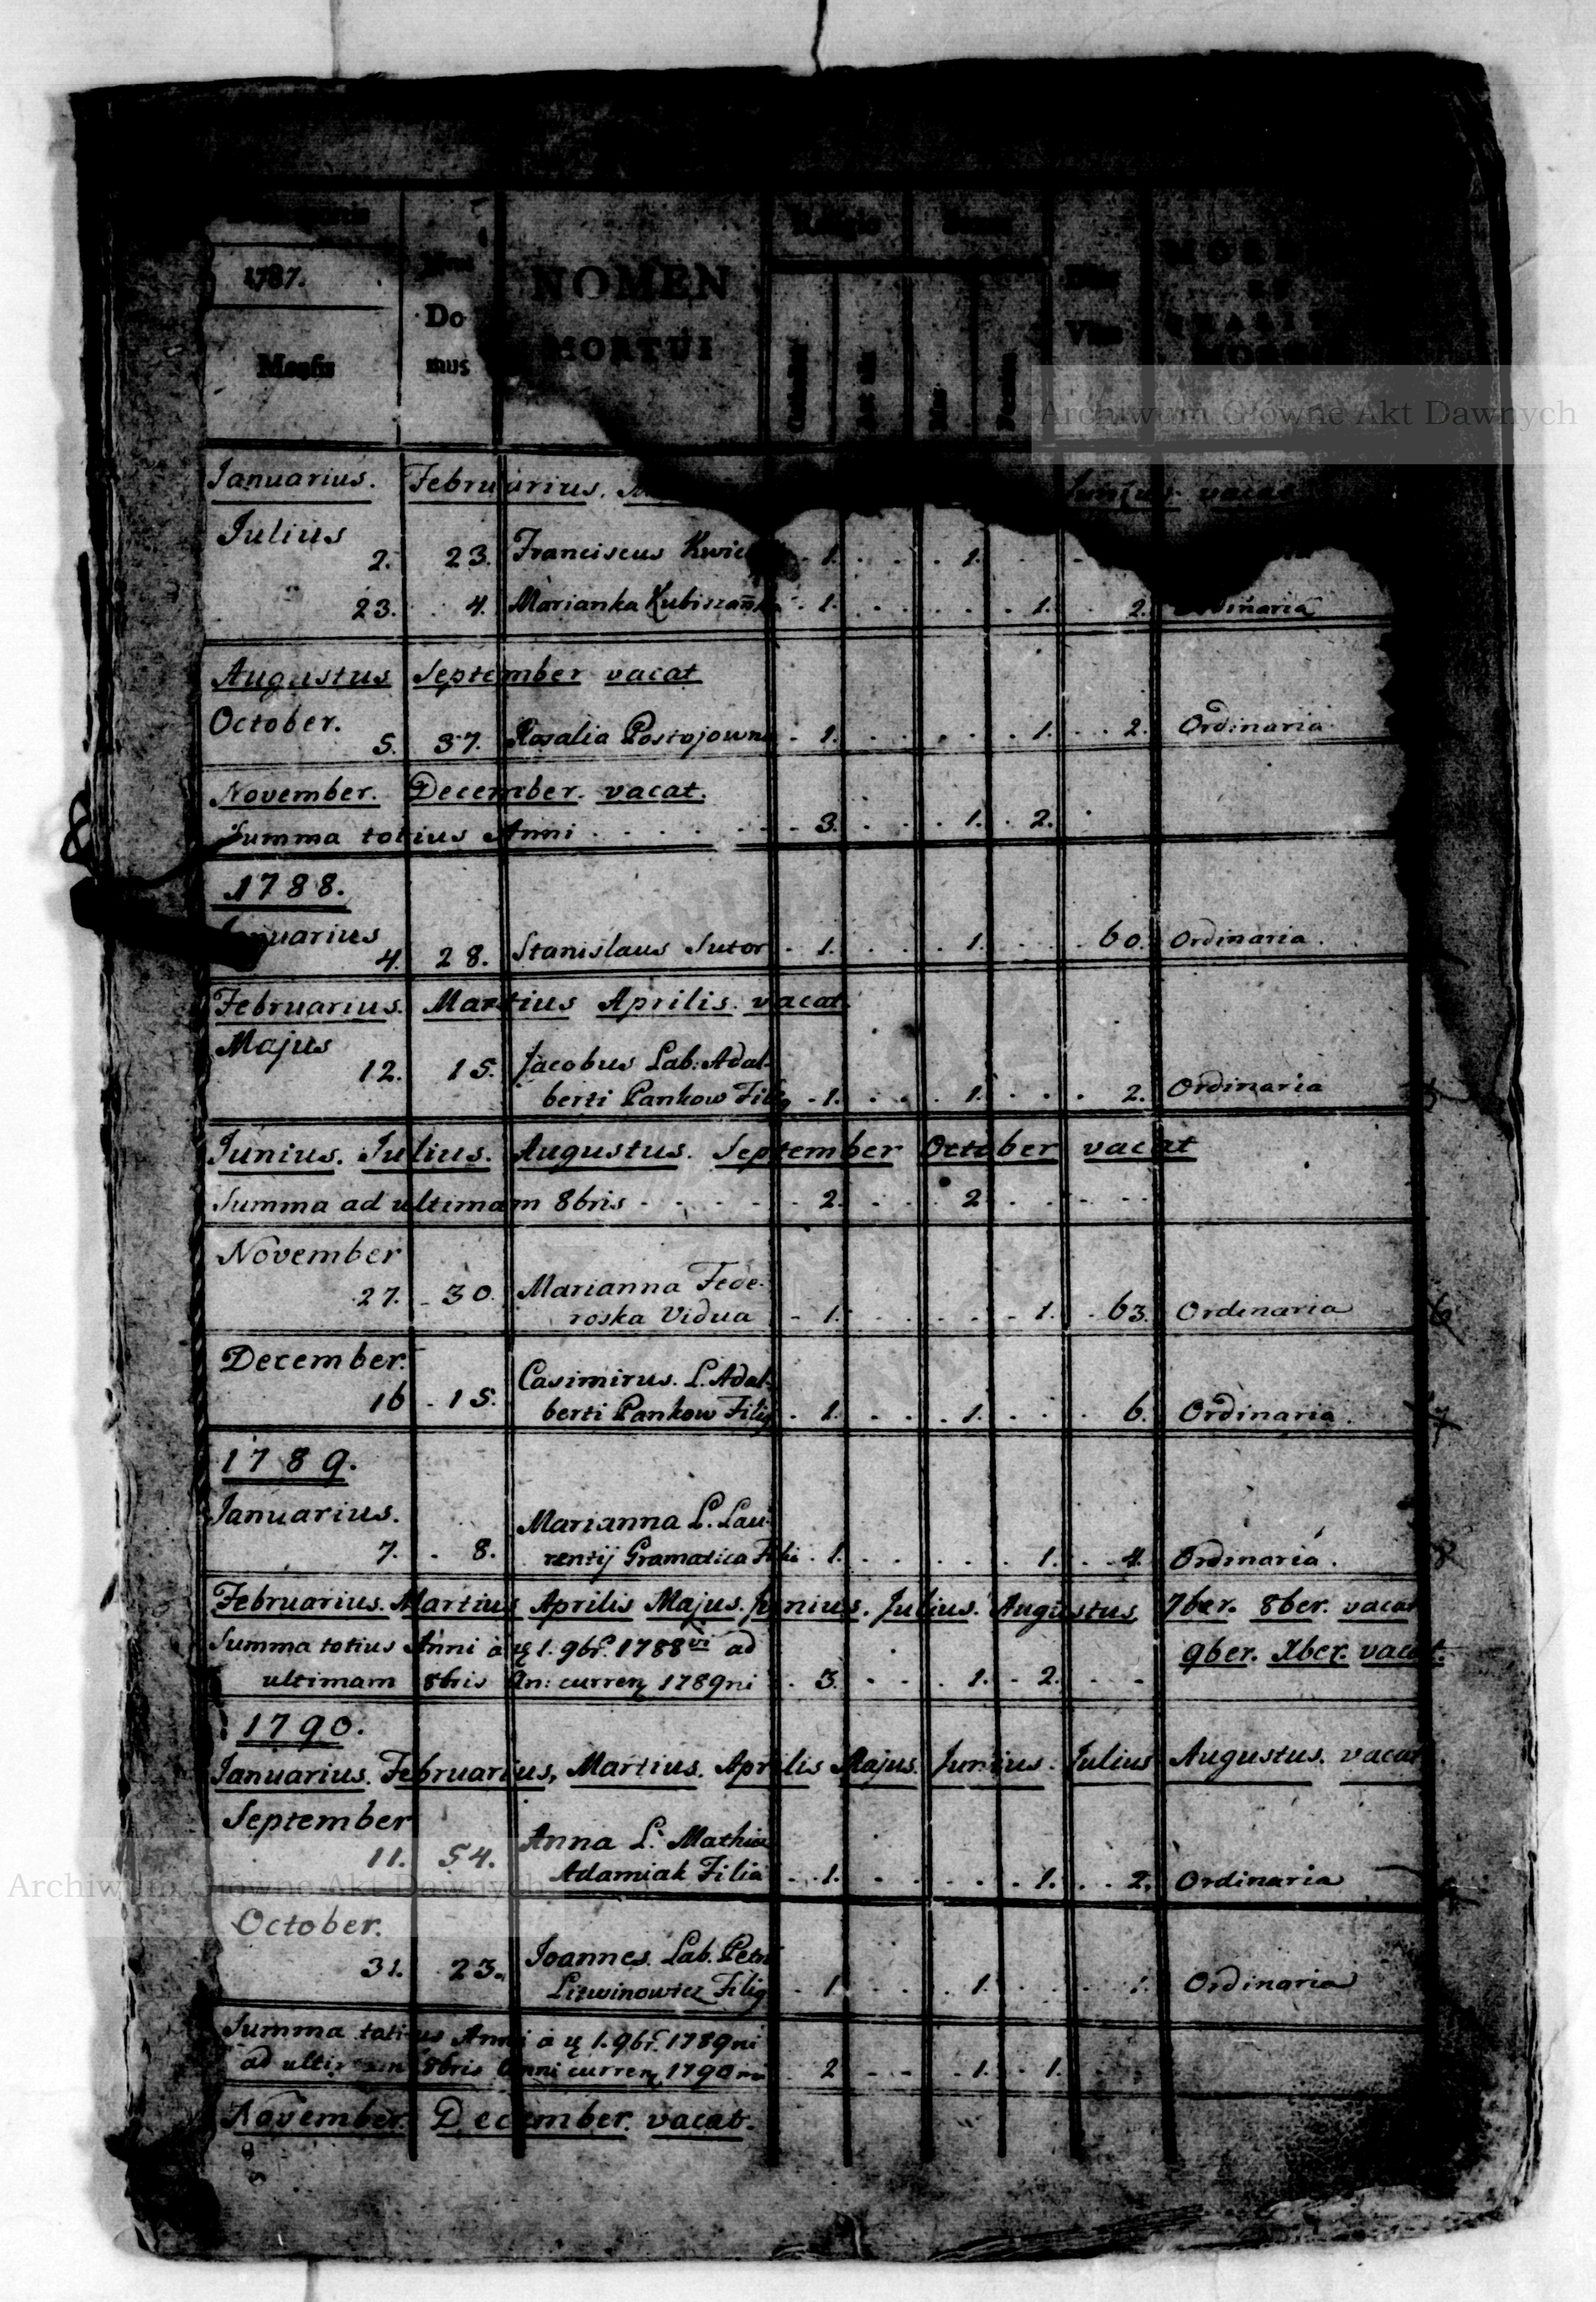 1787.
Mensis
Do
mus
NOMEN
MORTUI
Religio
Vitæ
MORBUS
Archiwum Główne Akt Dawnych
Januarius. Februarius. Junius vacat
Julius
2. 23. Franciscus 1. 1.
23. 4. Marianka 1. 1. 2. Ordinaria
Augustus September vacat
October.
5. 37. Rosalia Postojowna 1. 1. 2. Ordinaria
November. December. vacat.
Summa totius Anni 3. 1. 2.
1788.
Januarius
4. 28. Stanislaus Sutor 1. 1. 60. Ordinaria.
Februarius. Martius Aprilis. vacat.
Majus
12. 15. Jacobus Lab: Adal-
berti Pankow Filiq 1. 1. 2. Ordinaria
Junius. Julius. Augustus. September October vacat
Summa ad ultimam 8bris 2. 2
November
27. 30. Marianna Fede-
roska Vidua 1. 1. 63. Ordinaria
December.
16 15. Casimirus. L. Adal-
berti Pankow Filiq 1. 1. 6. Ordinaria.
1789.
Januarius.
7. 8. Marianna L. Lau-
rentij Gramatica 1. 1. 4. Ordinaria.
Februarius. Martius Aprilis Majus. Junius. Julius. Augustus 7ber. 8ber. vacat
9ber. Xber. vacat.
Summa totius Anni à 1. 9br. 1788vi ad
ultimam 8bris An: curren 1789ni 3. 1. 2.
1790.
Januarius. Februarius, Martius. Aprilis Majus. Junius. Julius Augustus. vacat
September
11. 54. Anna L. Mathiæ
Adamiak Filia 1. 1. 2. Ordinaria
Archiwum Główne Akt Dawnych
October.
31. 23. Joannes. Lab. Petri
Litwinowicz Filiq 1. 1. 1. Ordinaria
Summa totius Anni à 1. 9br. 1789ni
ad ultimam 8bris Anni curren 1790mi 2 1. 1.
November. December. vacat.